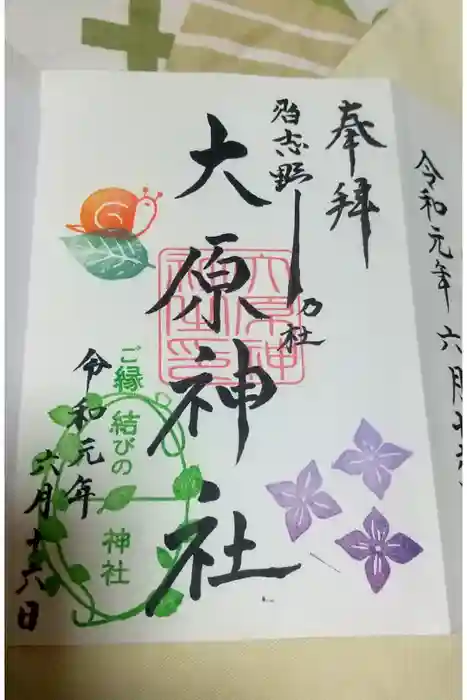 令和元年 六月十
奉拝
習志野
乃社
大原神社
ご縁結びの神社
令和元年
六月十六日